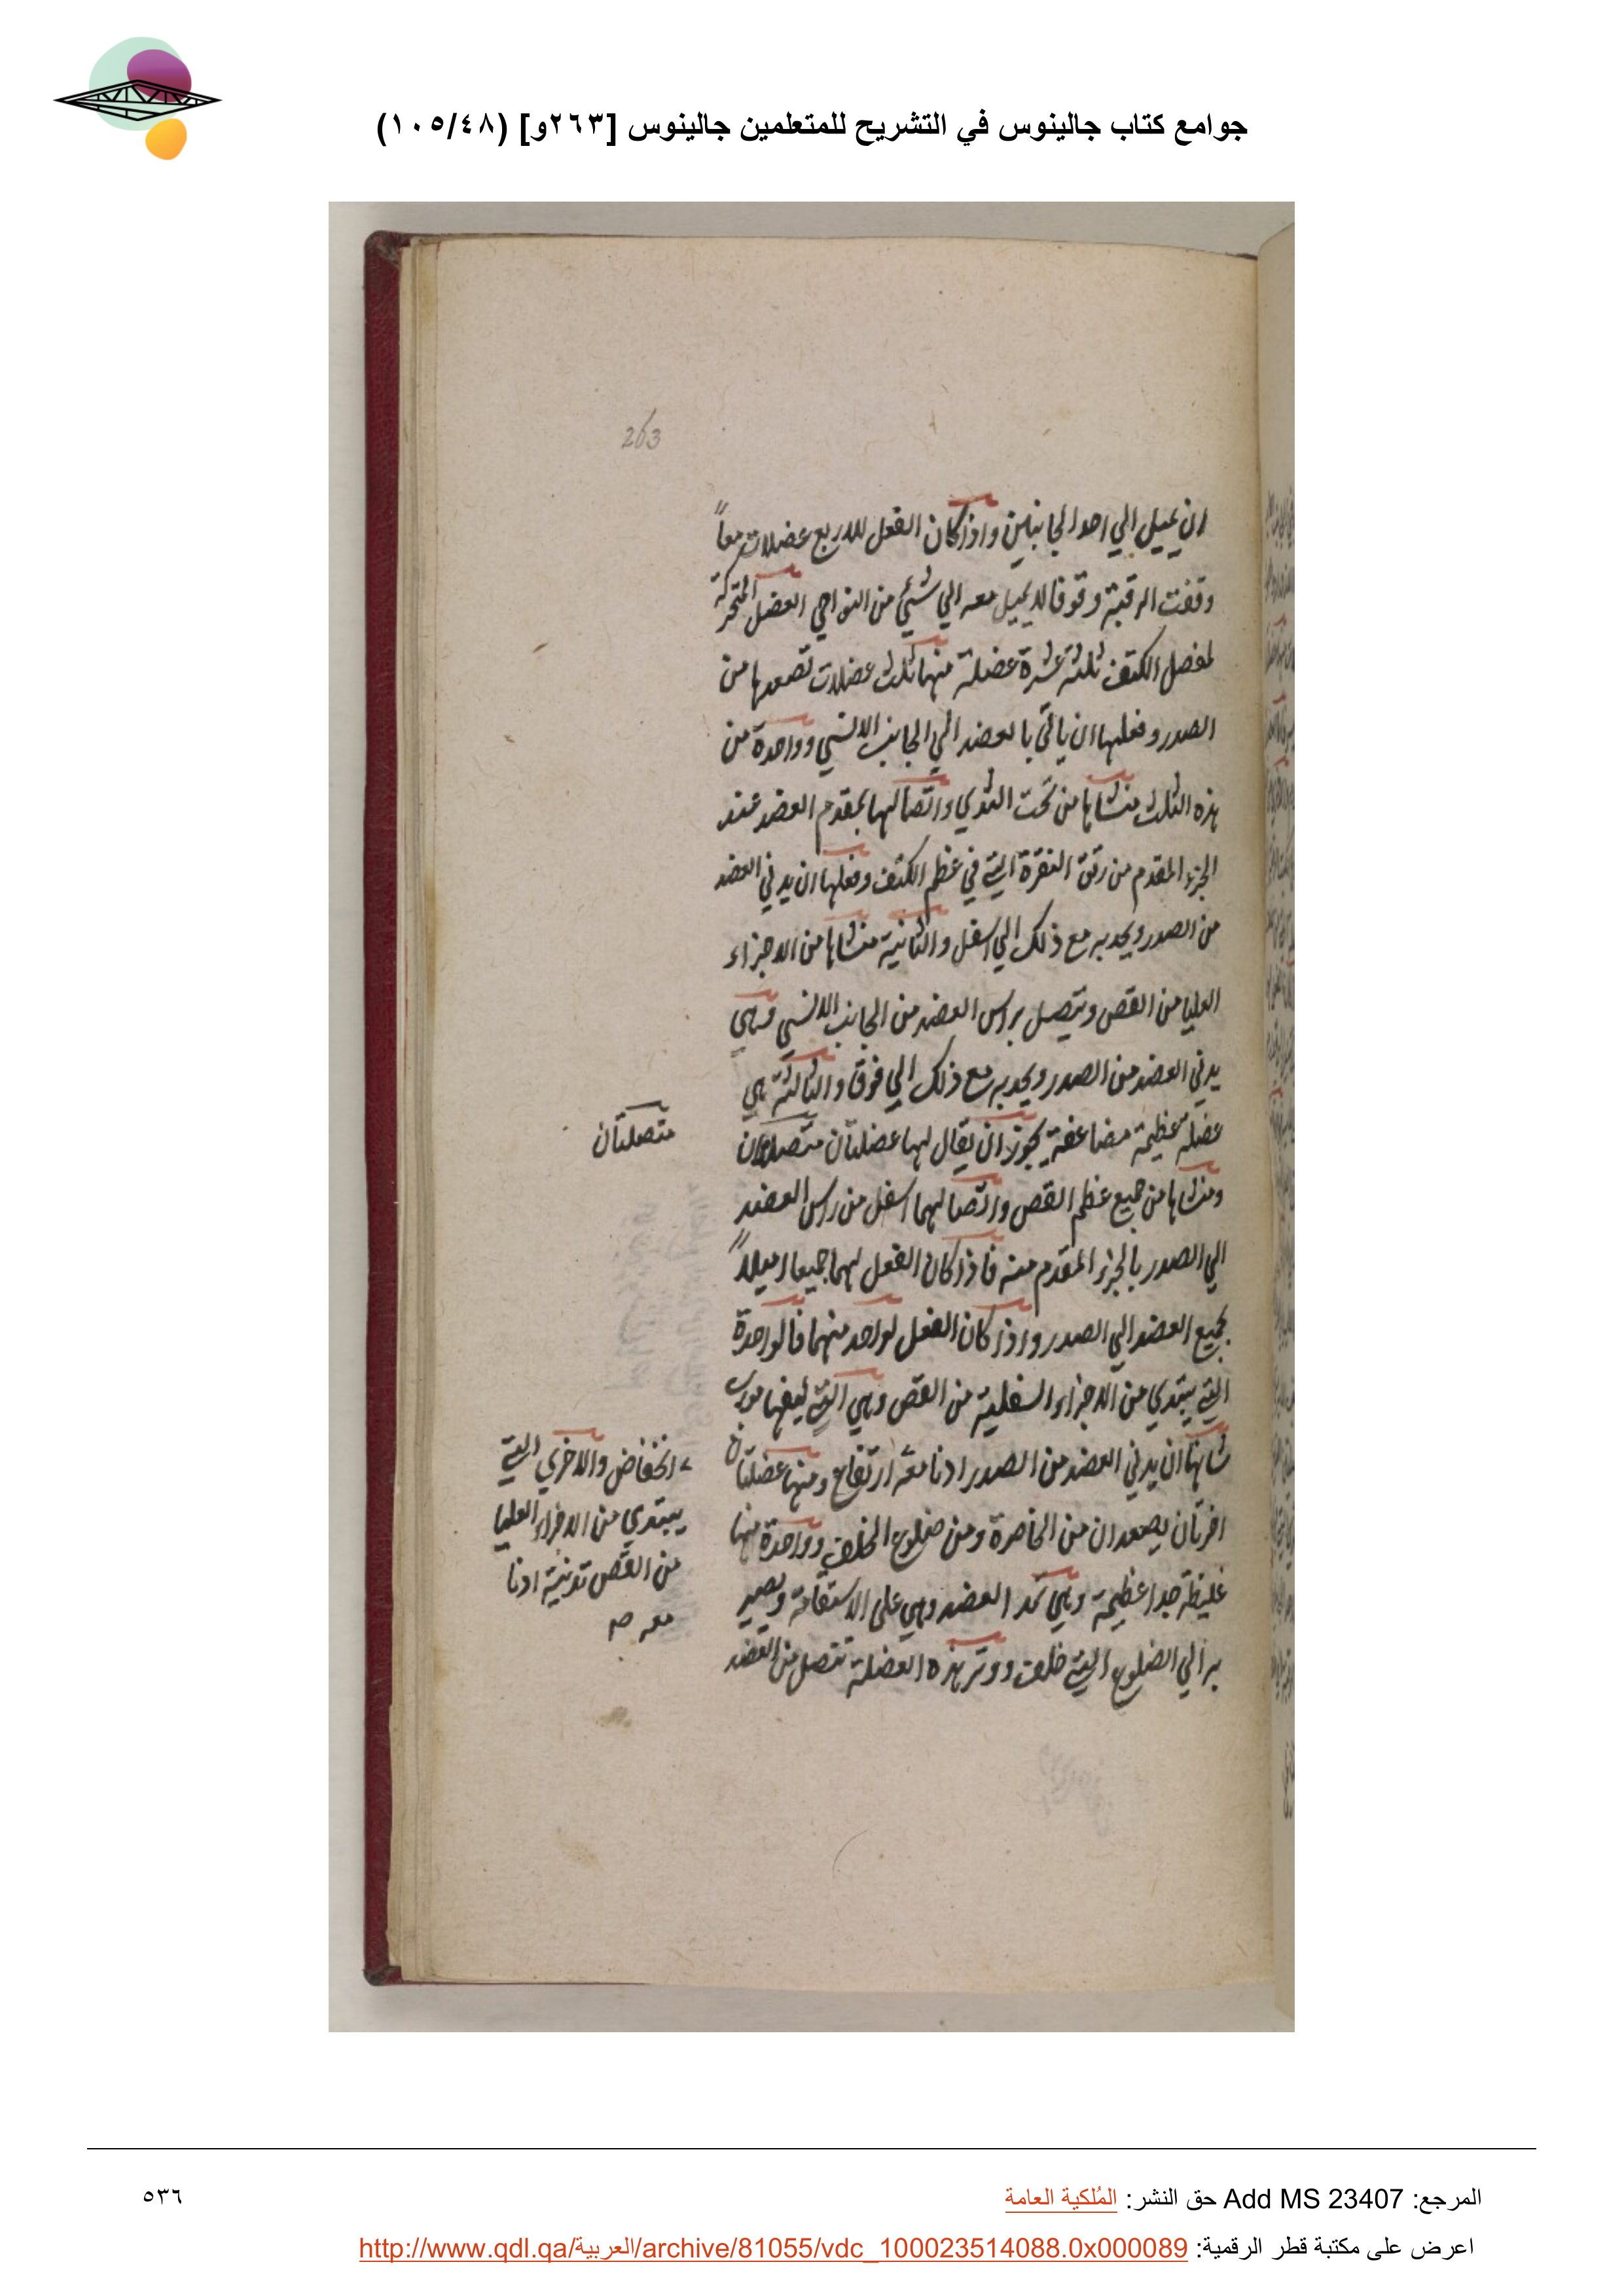 جوامع كتاب جالينوس في التشريح للمتعلمين جالينوس [٢٦٣و] (١٠٥/٤٨)
263
ان يميل الي احد الجانبين واذا كان الفعل للاربع عضلات معاً
وقفت الرقبة وقوفا لا يميل معه الي شئي من النواحي العضل المتحركة
لمفصل الكتف ثلثة عشرة عضلة منها ثلث عضلات تصعدها من
الصدر وفعلها ان يأتي بالعضد الي الجانب الانسي وواحدة من
هذه الثلث منشاها من تحت الثدي واتصالها بمقدم العضد عند
الجزء المقدم من النقرة التي في عظم الكتف وفعلها ان يدني العضد
من الصدر ويجذبه مع ذلك الي اسفل والثانية منشاها من الاجزاء
العليا من القص وتتصل براس العضد من الجانب الانسي وهي
يدني العضد من الصدر ويجذبه مع ذلك الي فوق والثالثة هي
عضلة عظيمة مضاعفة يجوز ان يقال لها عضلتان
متصلتان
ومنشاها من جميع عظم القص واتصالهما اسفل من راس العضد
الي الصدر بالجزء المقدم منه فاذا كان الفعل لهما جميعا
بجميع العضد الي الصدر واذا كان الفعل لواحد منهما فالواحدة
التي يبتدي من الاجزاء السفلية من القص وهي التي ليفها مورب
شانها ان يدني العضد من الصدر ادنا معه ارتفاع ومنها عضلتان
انخفاض والاخري التي
يبتدي من الاجزاء العليا
من القص تدنية ادنا
معه صح
اخرتان يصعدان من الخاصرة ومن ضلوع الخلف وواحدة منها
غليظة جدا عظيمة وهي تمد العضد وهي علي الاستقامة ويصير
به الي الضلوع التي خلف ووتر هذه العضلة تتصل من العضد
المرجع: Add MS 23407 حق النشر: المُلكية العامة
٥٣٦
اعرض على مكتبة قطر الرقمية: http://www.qdl.qa/العربية/archive/81055/vdc_100023514088.0x000089